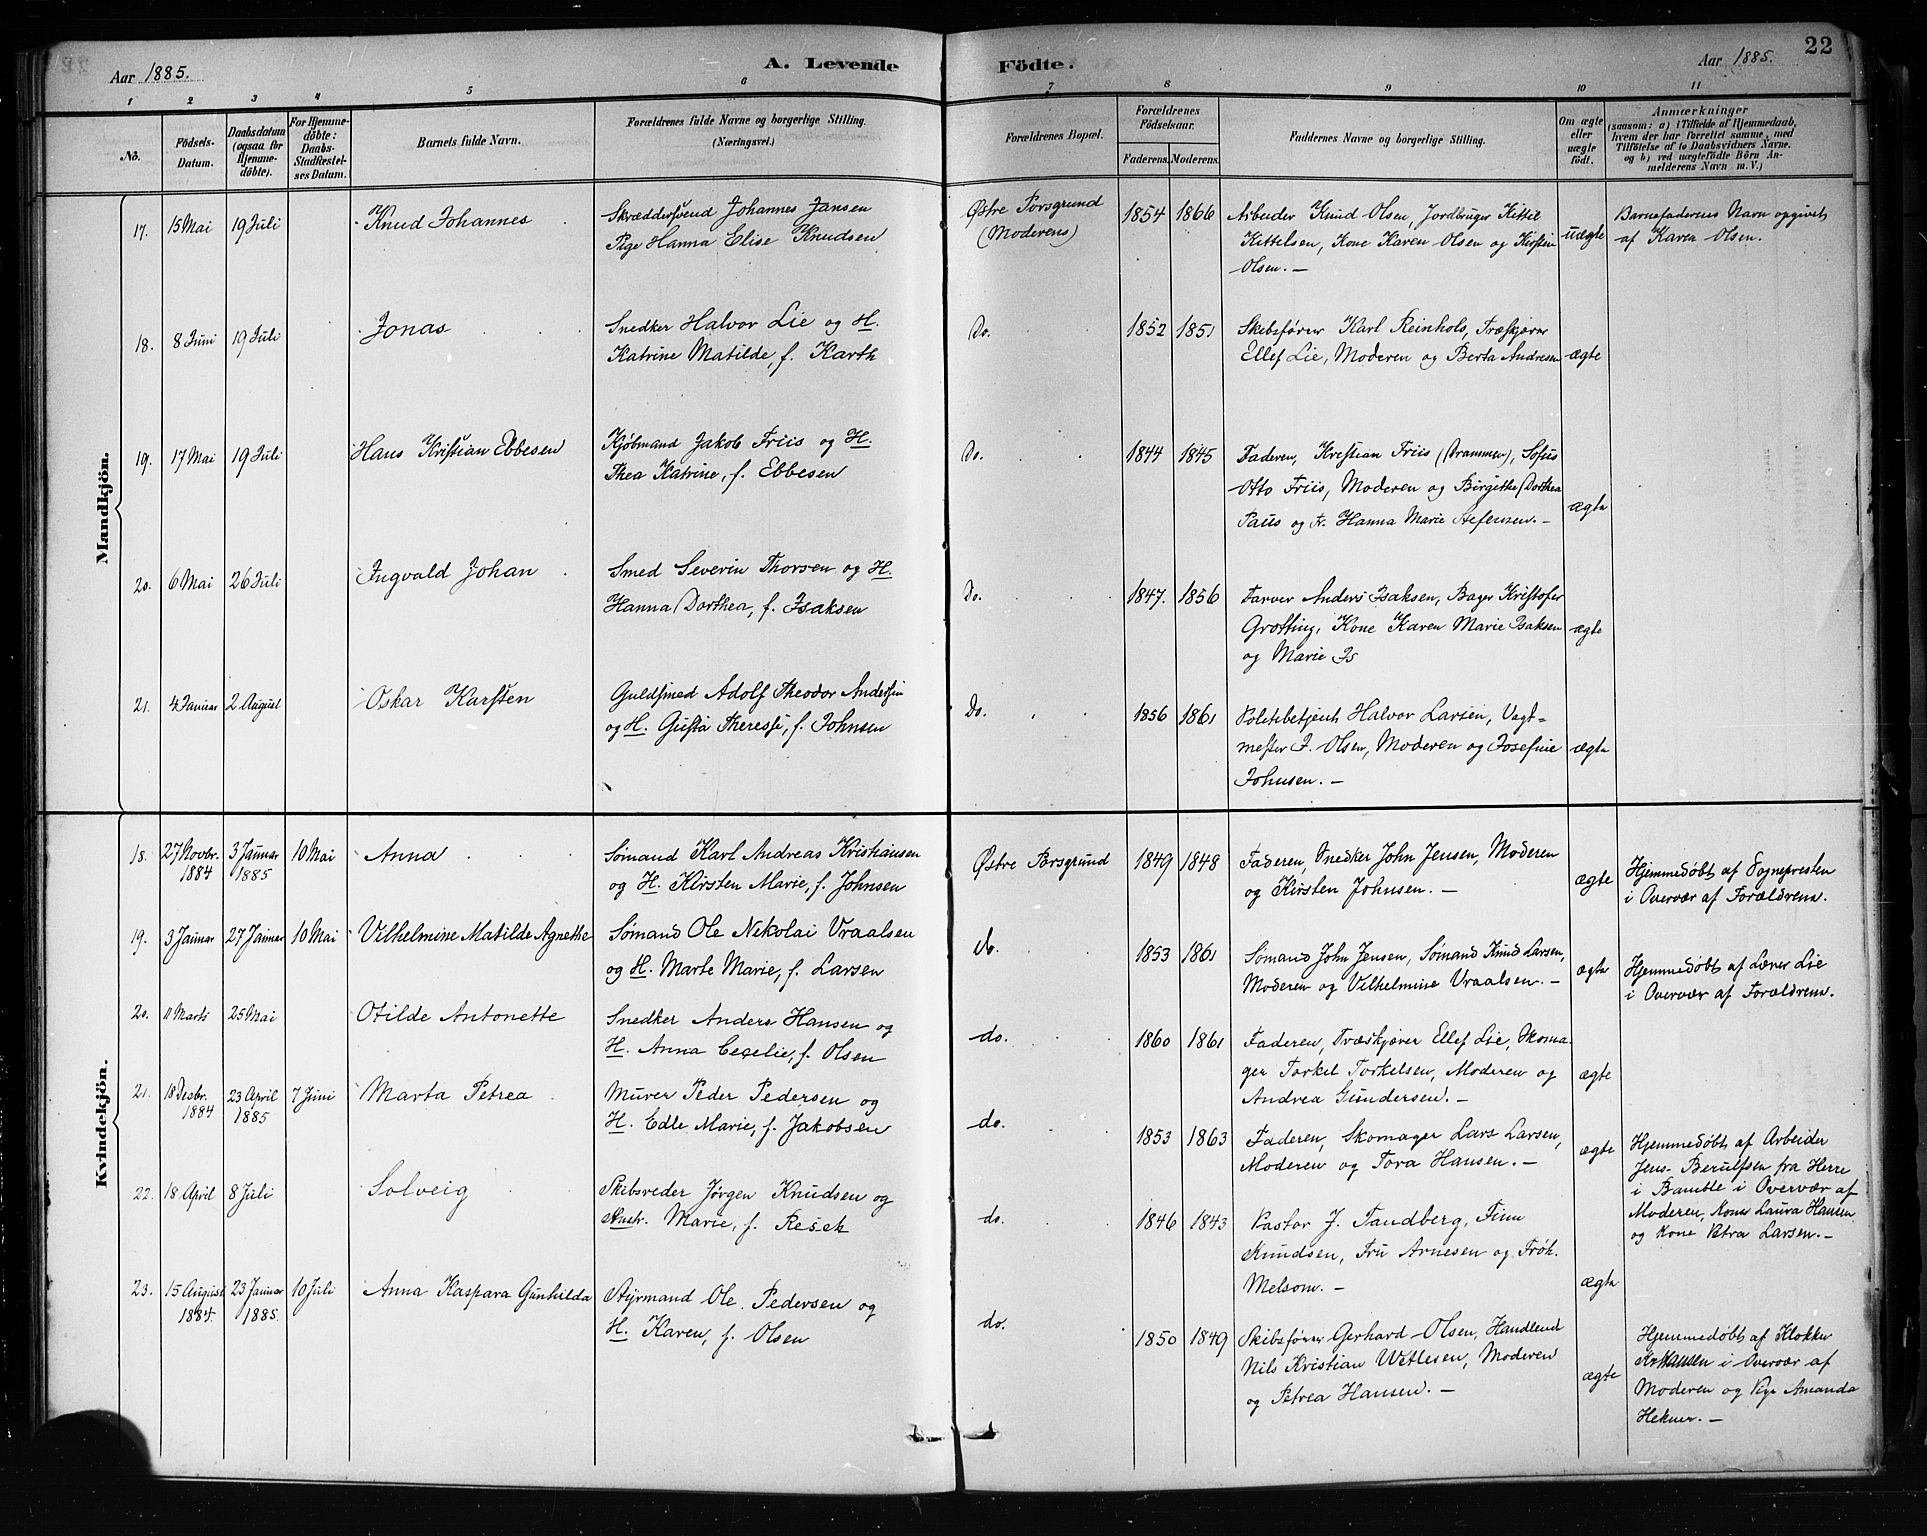 Aar 1885.
A. Levende Födte.
Aar 1885.
22
1 2 3 4 5 6 7 8 9 10 11
No.
Födsels-Datum.
Daabsdatum (ogsaa för Hjemme-döbte).
For Hjemme-döbte: Daabs-Stadfæstel-ses Datum.
Barnets fulde Navn.
Forældrenes fulde Navne og borgerlige Stilling. (Næringsvei.)
Forældrenes Bopæl.
Forældrenes Födselsaar.
Faderens. Moderens.
Faddernes Navne og borgerlige Stilling.
Om ægte eller uægte födt.
Anmærkninger
(saasom: a) i Tilfælde af Hjemmedaab, hvem der har forrettet samme, med Tilföielse af to Daabsvidners Navne. og b) ved uægtefödte Börn An-melderens Navn m. V.)
Mandkjön.
17. 15 Mai 19 Juli Knud Johannes
Skræddersvend Johannes Jansen
Pige Hanna Elise Knudsen
Østre Porsgrund
(Moderens)
1854 1866
Arbeider Knud Olsen, Jordbruger Kittil
Kittelsen, Kone Karen Olsen og Kirsten
Olsen. —
uægte
Barnefaderens Navn opgivet
af Karen Olsen.
18. 8 Juni 19 Juli Jonas
Snedker Halvor Lie og H.
Katrine Matilde, f. Karth
Do. 1852 1851
Skibsfører Karl Reinhols, Træskjærer
Ellef Lie, Moderen og Berta Andresen
ægte
19. 17 Mai 19 Juli Hans Kristian Ebbesen
Kjøbmand Jakob Friis og H.
Thea Katrine, f. Ebbesen
Do. 1844 1845
Faderen, Kristian Friis (Drammen), Sofus
Otto Friis, Moderen og Birgithe Dorthea
Paus og Fr. Hanna Marie Stefensen. —
ægte
20. 6 Mai 26 Juli Ingvald Johan
Smed Severin Thorsen og H.
Hanna Dorthea, f. Isaksen
Do. 1847. 1856
Farver Anders Isaksen, Bager Kristofer
Grotting, Kone Karen Marie Isaksen
og Marie Is
ægte
21. 4 Januar 2 August Oskar Karsten
Guldsmed Adolf Theodor Andersen
og H. Gusta Therese, f. Johnsen
Do. 1856 1861
Politibetjent Halvor Larsen, Vagt-
mester J. Olsen, Moderen og Josefine
Johnsen. —
ægte
Kvindekjön.
18. 27 Novbr. 1884 3 Januar 1885 10 Mai Anna
Sømand Karl Andreas Kristiansen
og H. Kirsten Marie, f. Johnsen
Østre Porsgrund 1849 1848
Faderen, Snedker John Jensen, Moderen
og Kirsten Johnsen. —
ægte
Hjemmedøbt af Sognepresten
i Overvær af Forældrene.
19. 3 Januar 27 Januar 10 Mai Vilhelmine Matilde Agnethe
Sømand Ole Nikolai Vraalsen
og H. Marte Marie, f. Larsen
do. 1853 1861
Sømand John Jensen, Sømand Knud Larsen,
Moderen og Vilhelmine Vraalsen. —
ægte
Hjemmedøbt af Lærer Lie
i Overvær af Forældrene.
20. 11 Marts 25 Mai Otilde Antonette
Snedker Anders Hansen og
H. Anna Cecelie, f. Olsen
do. 1860 1861
Faderen, Træskjærer Ellef Lie, Skoma-
ger Torkel Torkelsen, Moderen og
Andrea Gundersen. —
ægte
21. 18 Desbr. 1884 23 April 1885 7 Juni Marta Petrea
Murer Peder Pedersen og
H. Edle Marie, f. Jakobsen
do. 1853 1863
Faderen, Skomager Lars Larsen,
Moderen og Tora Hansen. —
ægte
Hjemmedøbt af Arbeider
Jens Berulfsen fra Herre
i Bamble i Overvær af
Moderen, Kone Laura Hansen
og Kone Petra Larsen. —
22. 18 April 8 Juli Solveig
Skibsreder Jørgen Knudsen og
Hustr. Marie, f. Resch
do. 1846 1843
Pastor J. Tandberg, Finn
Knudsen, Fru Arnesen og Frøk.
Melsom. —
ægte
23. 15 August 1884 23 Januar 1885. 10 Juli Anna Kaspara Gunhilda
Styrmand Ole Pedersen og
H. Karen, f. Olsen
do. 1850 1849
Skibsfører Gerhard Olsen, Handlende
Nils Kristian Wetlesen, Moderen
og Petrea Hansen. —
ægte
Hjemmedøbt af Klokker
Kr Hansen i Overvær af
Moderen og Pige Amanda